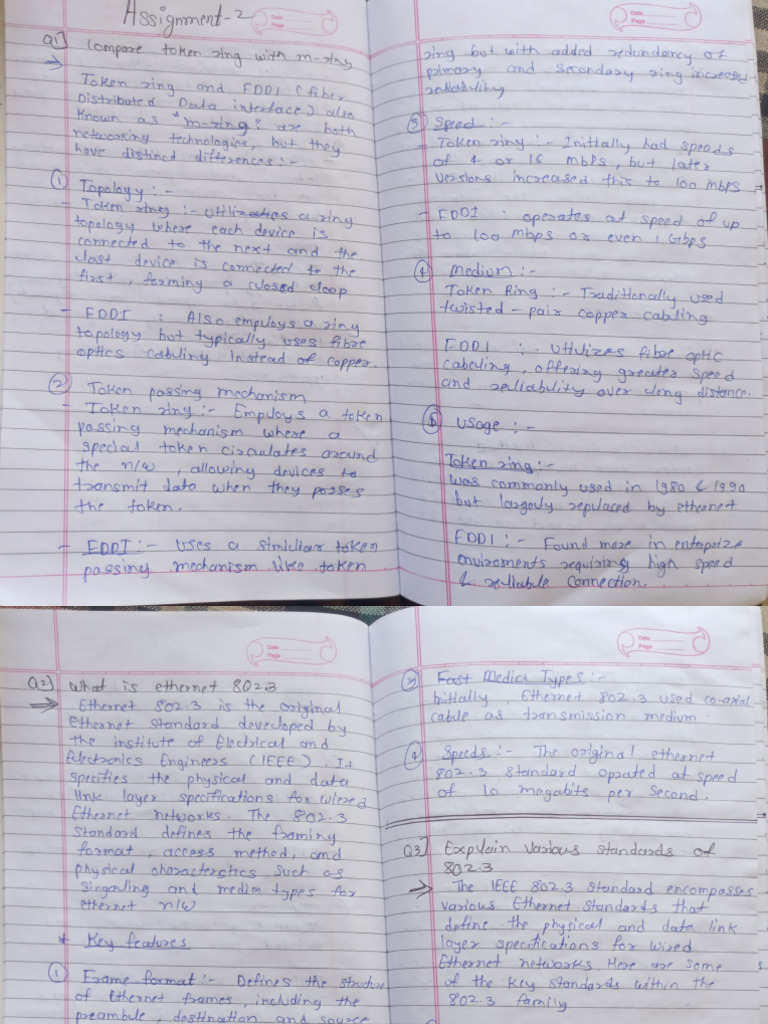 Assignment-2
Date
Page
Q1] Compare token ring with m-ring
→
Token ring and FDDI (fiber
Distributed Data interface) also
known as "m-ring" are both
networking technologies, but they
have distinct differences:-
① Topology:-
- Token ring:- Utilizes a ring
topology where each device is
connected to the next and the
last device is connected to the
first, forming a closed loop
- FDDI : Also employs a ring
topology but typically uses fibre
optics cabling instead of copper.
② Token passing mechanism
- Token ring:- Employs a token
passing mechanism where a
special token circulates around
the n/w, allowing devices to
transmit data when they posses
the token.
- FDDI:- Uses a similar token
passing mechanism like token
Date
Page
ring but with added redundancy of
primary and secondary ring increases
reliability
③ Speed:-
- Token ring:- Initially had speeds
of 4 or 16 mbps, but later
versions increased this to 100 mbps
- FDDI : operates at speed of up
to 100 mbps or even 1 Gbps
④ Medium:-
Token Ring:- Traditionally used
twisted-pair copper cabling
FDDI :. Utilizes fibre optic
cabeling, offering greater speed
and reliability over long distance.
⑤ Usage:-
Token ring:-
was commonly used in 1980 & 1990
but largely replaced by ethernet
FDDI:- Found more in enterprize
enviroments requiring high speed
& relliable connection.
Date
Page
Q2] What is ethernet 802.3
⇒ Ethernet 802.3 is the original
Ethernet standard developed by
the institute of Electrical and
Electronics Engineers (IEEE). It
specifies the physical and data
link layer specifications for wired
Ethernet networks. The 802.3
standard defines the framing
format, access method, and
physical characterstics such as
singauling and media types for
ethernet n/w
* Key features
① Frame format:- Defines the structure
of Ethernet frames, including the
preambule, destination and source
Date
Page
③ Fast Media Types:-
Initially, Ethernet 802.3 used co-axial
cable as transmission medium.
④ Speeds:- The original ethernet
802.3 standard oprated at speed
of 10 magabits per second.
Q3] Explain various standards of
802.3
⇒ The IEEE 802.3 standard encompasses
various Ethernet standards that
define the physical and data link
layer specifications for wired
Ethernet networks. Here are some
of the key standards within the
802.3 family